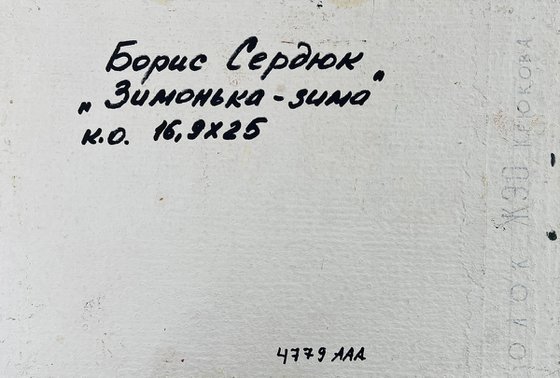 Борис Сердюк
„Зимонька-зима"
к.о. 16,9х25
4779 ААА
ОЛОК ЖЭО КРЮКОВА